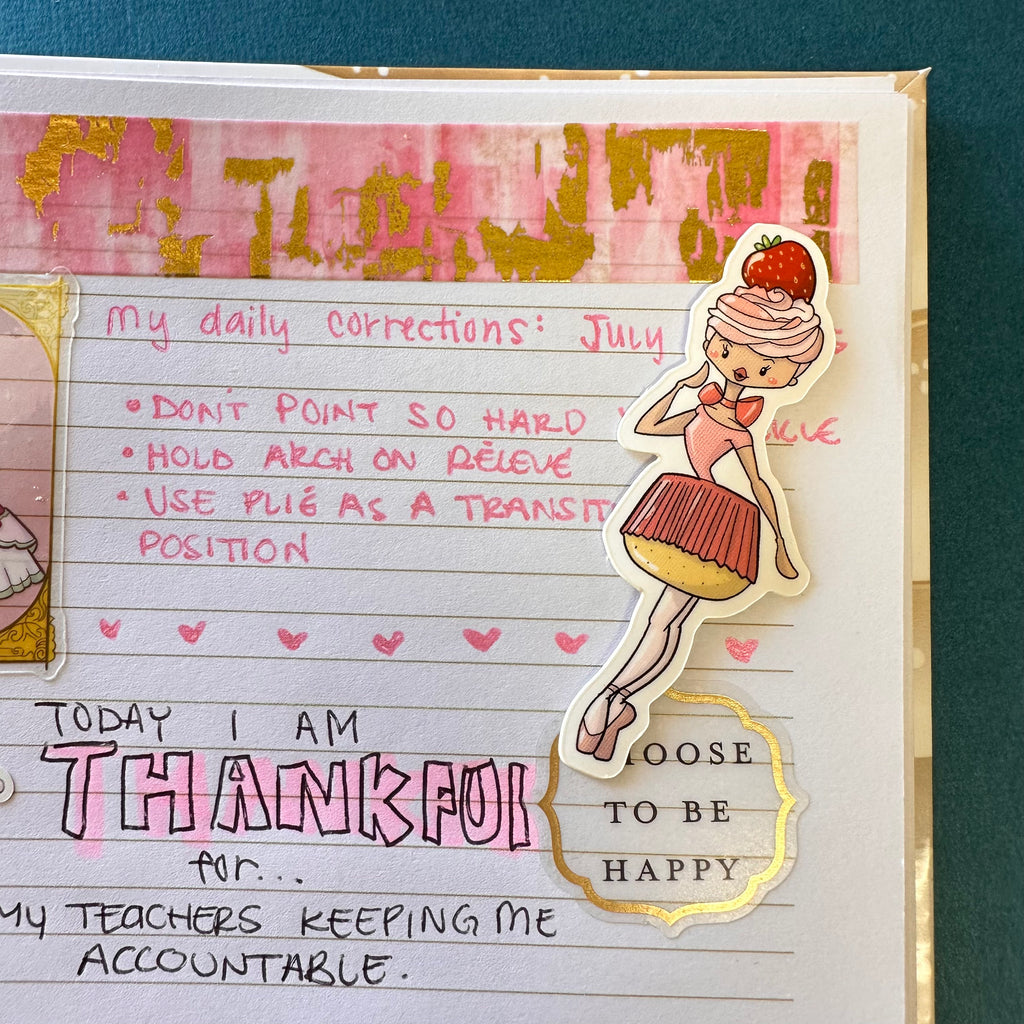 my daily corrections: July
• DON'T POINT SO HARD
• HOLD ARCH ON RELEVÉ
• USE PLIÉ AS A TRANSIT
POSITION
TODAY I AM
THANKFUL
for...
MY TEACHERS KEEPING ME
ACCOUNTABLE.
HOOSE
TO BE
HAPPY